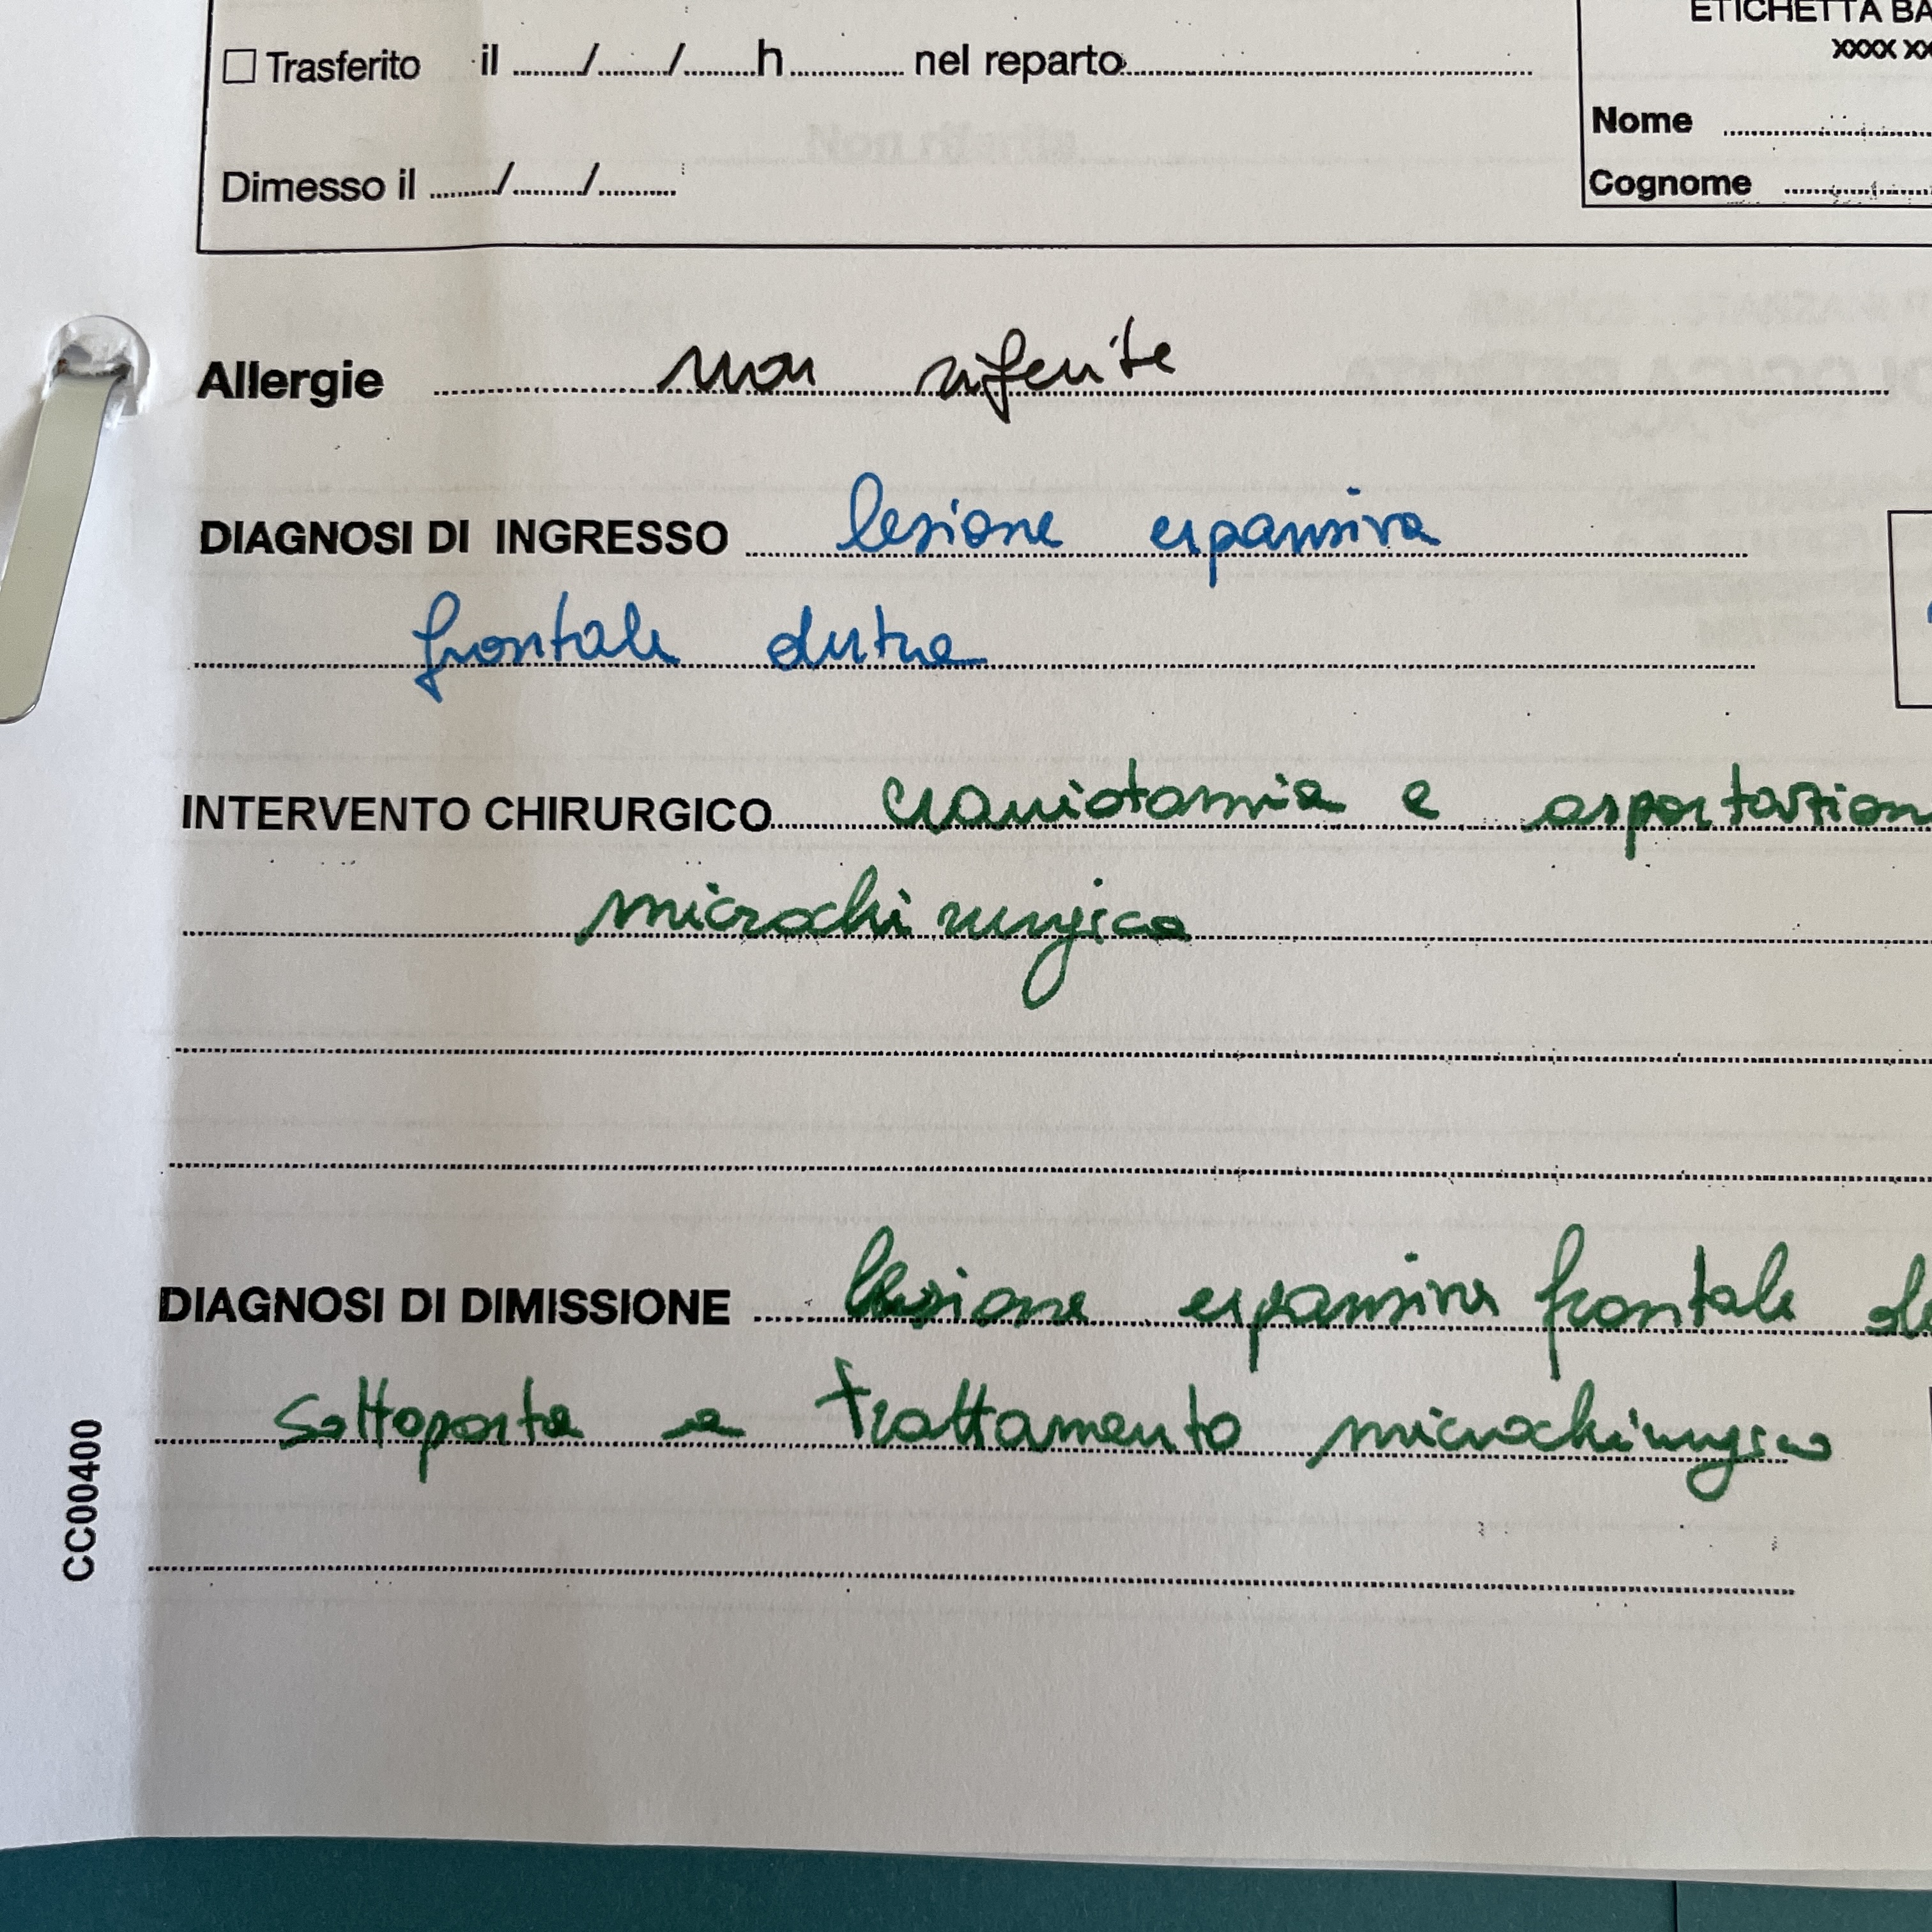 ETICHETTA BA
XXXX XX
Trasferito il ......../......../.........h............. nel reparto..........
Nome ..........
Dimesso il ......../......../..........
Cognome ..........
Allergie non riferite
DIAGNOSI DI INGRESSO lesione espansiva
frontale destra
INTERVENTO CHIRURGICO craniotomia e asportazion
microchirurgica
DIAGNOSI DI DIMISSIONE lesione espansiva frontale de
sottoposta a trattamento microchirurgico
CC00400